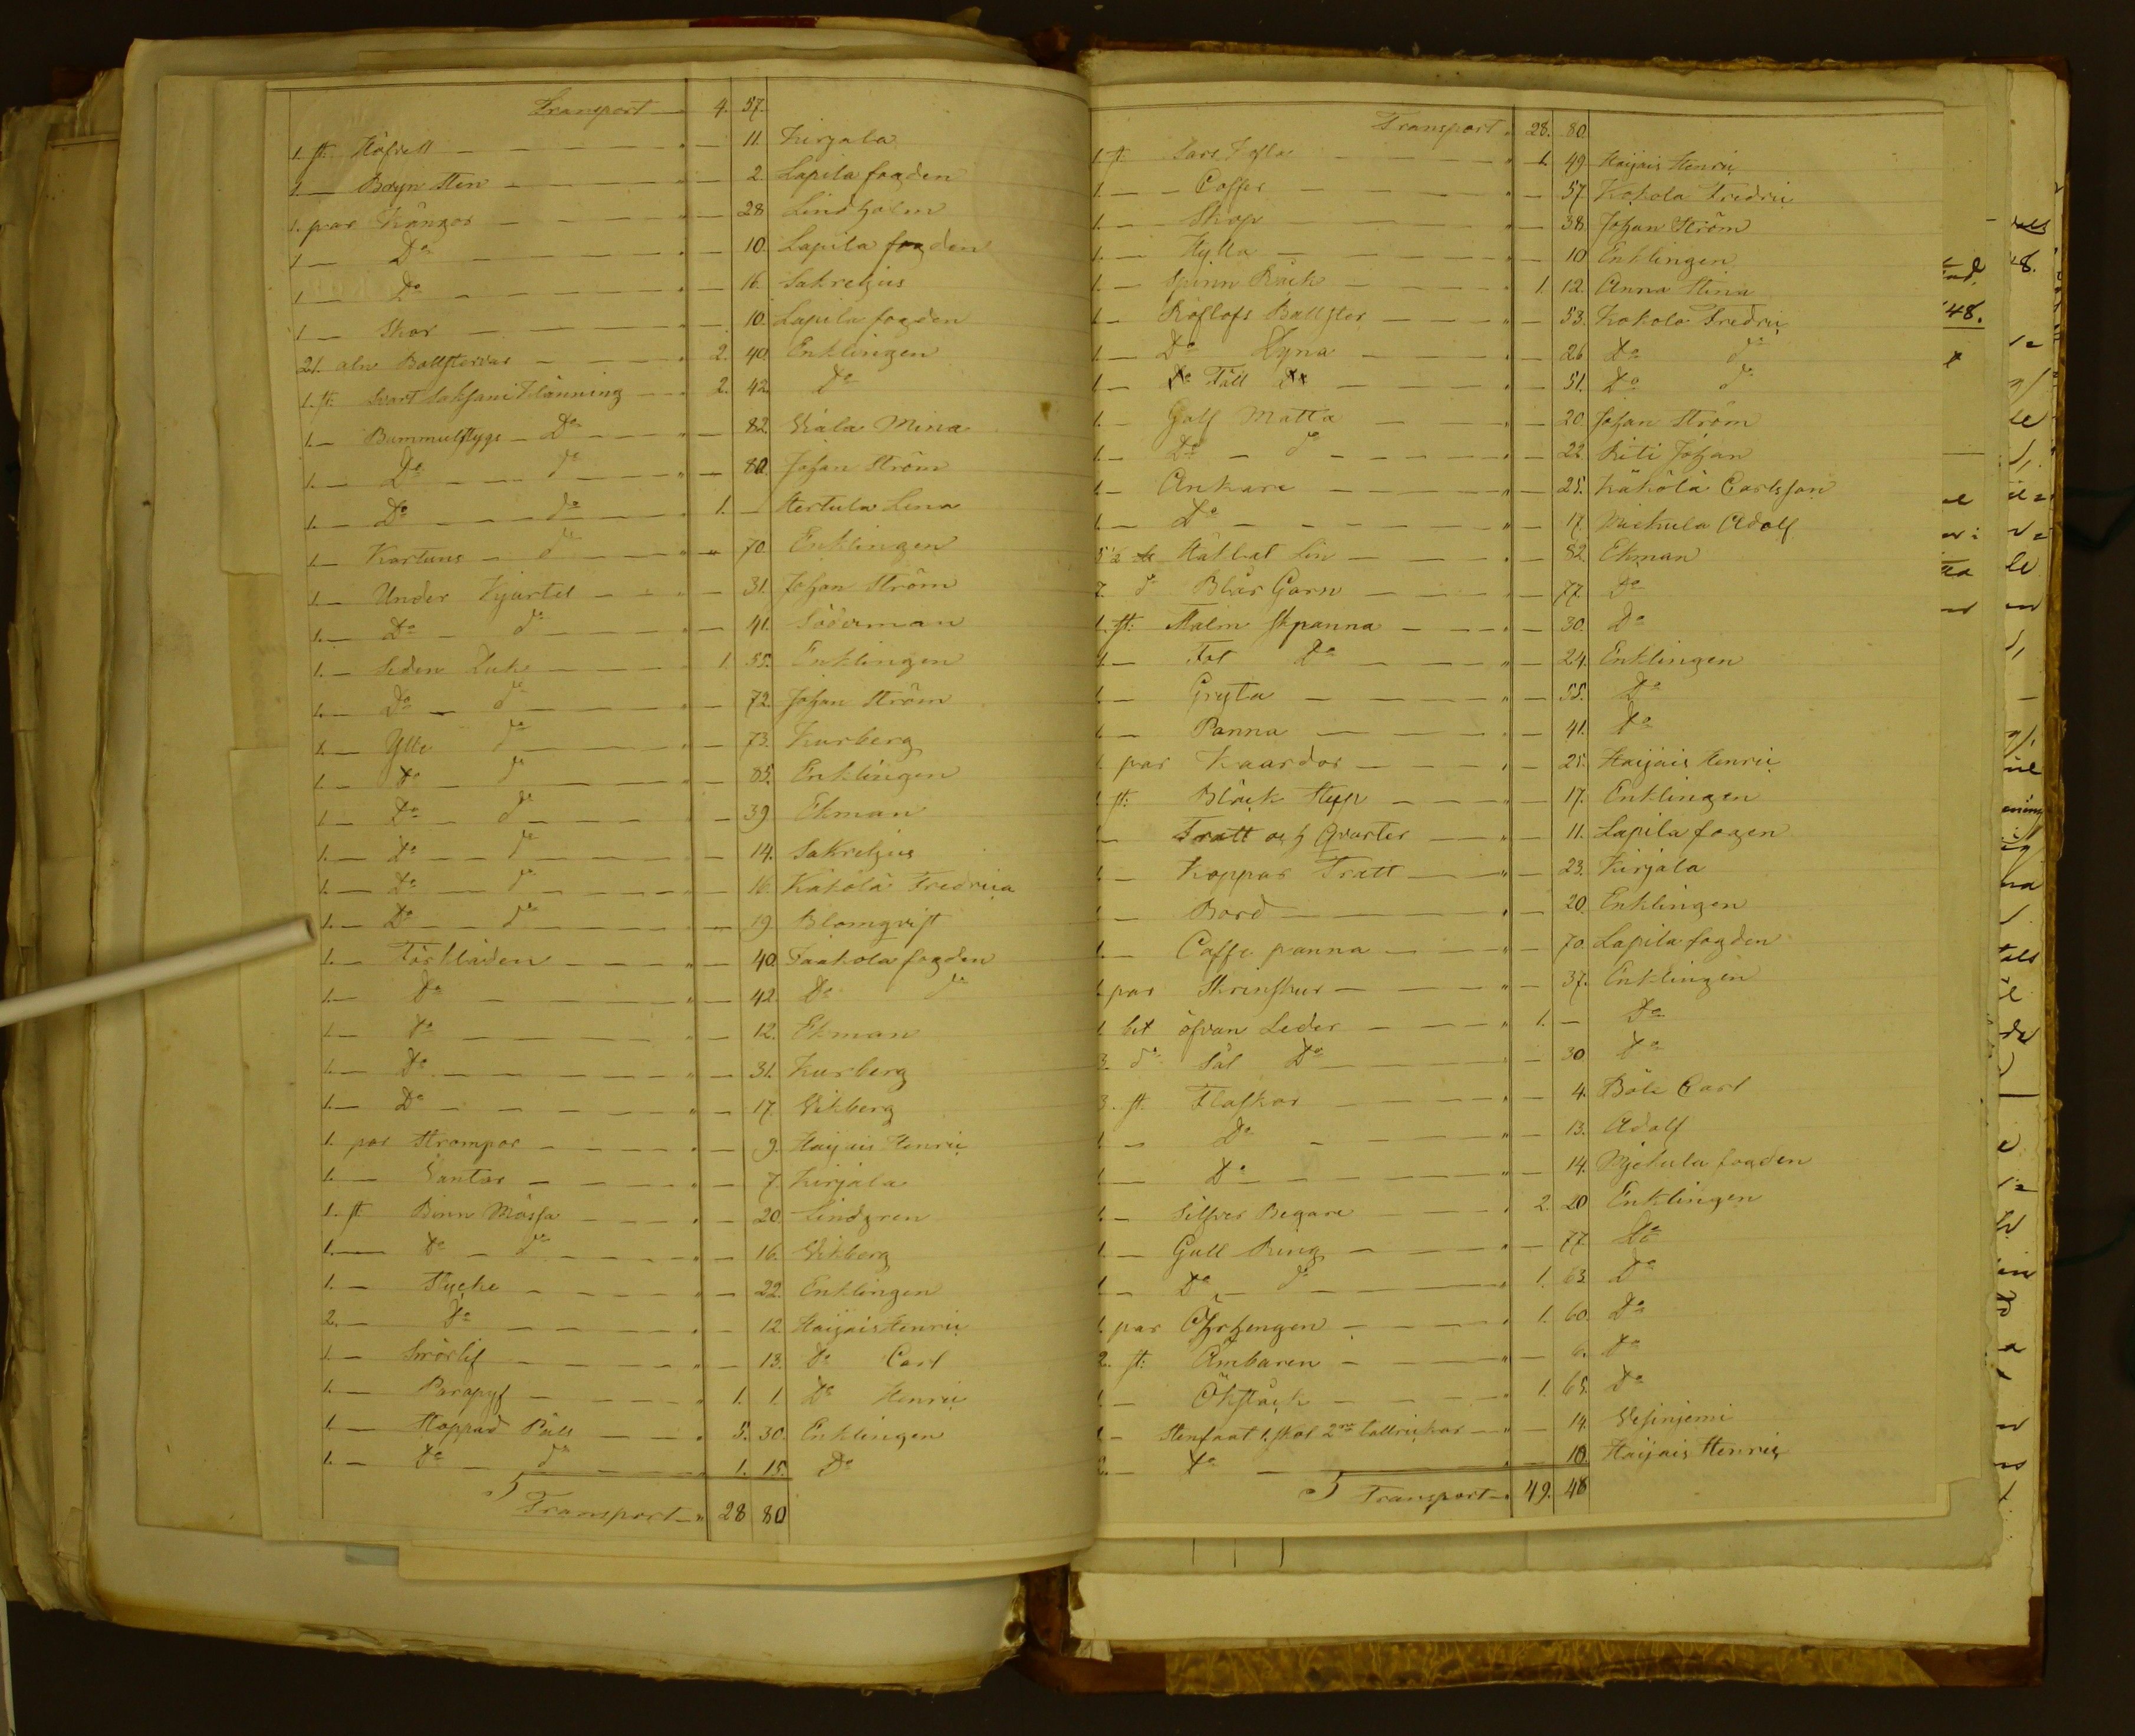 Transport 4. 57.
1. st. Höfvell — " — 11. Kirjala
1. — Bryn Sten — " — 2. Lapila fogden
1. par Kängor — " — 28. Lindholm
1. — Do — " — 10. Lapila fogden
1. — Do — " — 16. Sakrelius
1. — Skor — " — 10. Lapila fogden
21. aln Bollstervar — " 2. 40. Enklingen
1. st. Svart Klänning — 2. 42. Do
1. — Bummulstygs Do — " — 82. Wäla Mina
1. — Do do — " — 80. Johan Ström
1. — Do do — 1. — Hertula Lena
1. — Kartuns do — " — 70. Enklingen
1. — Under Kjortel — " — 31. Johan Ström
1. — Do do — " — 41. Söderman
1. — Siden Duk — 1. 55. Enklingen
1. — Do do — " — 72. Johan Ström
1. — Ylle do — " — 73. Kurberg
1. — Do do — " — 85. Enklingen
1. — Do do — " — 39. Ekman
1. — Do do — " — 14. Sakrelius
1. — Do do — " — 16. Käkölä Fredrica
1. — Do do — " — 19. Blomqvist
1. — Förkläden — " — 40. Taakola fogden
1. — Do — " — 42. Do do
1. — Do — " — 12. Ekman
1. — Do — " — 31. Kurberg
1. — Do — " — 17. Wikberg
1. par Strumpor — " — 9. Haijais Henric
1. — Vantar — " — 7. Kirjala
1. st. Binn Mössa — " — 20. Lindgren
1. — Do do — " — 16. Wikberg
1. — Stycke — " — 22. Enklingen
2. — Do — " — 12. Haijais Henric
1. — Smörlif — " — 13. Do Carl
1. — Parapyf — " 1. 1. Do Henric
1. — Stoppad Päls — " 5. 30. Enklingen
1. — Do do — " 1. 15. Do
Transport " 28 80
Transport " 28. 80.
1. st. — " 1. 49 Haijais Henric
1. — Coffer — " — 57. Kokola Fredric
1. — Skåp — " — 38. Johan Ström
1. — Hylla — " — 10 Enklingen
1. — Spinn Råck — " 1. 12. Anna Stina
1. — Röslofs Ballster — " — 53. Kokola Fredric
1. — Do Dyna — " — 26 Do do
1. — Do Fäll — " — 51. Do do
1. — Golf Matta — " — 20 Johan Ström
1. — Do do — " — 22 Riti Johan
1. — Ankare — " — 25. Käkölä Carlsson
1. — Do — " — 17. Mickula Adolf
5 1/2 Häklat Lin — " — 82. Ekman
7. do Blår Garn — " — 77. Do
1. st. Malm Skpanna — " — 30. Do
1. — Fot Do — " — 24. Enklingen
1. — Gryta — " — 55. Do
1. — Panna — " — 41. Do
1. par Kaardor — " — 25. Haijais Henric
1. st: Bläck Stop — " — 17. Enklingen
1. — Tratt och Qvarter — " — 11. Lapila fogen
1. — Koppar Tratt — " — 23. Kirjala
1. — Bord — " — 20. Enklingen
1. — Caffe panna — " — 70. Lapila fogden
1. par Skrinskur — " — 37. Enklingen
1. bit öfvan Leder — " 1. — Do
3. do Sål Do — " — 30 Do
3. st. Flaskor — " — 4. Böle Carl
1. — Do — " — 13. Adolf
1. — Do — " — 14. Mjckula fogden
1. — Silfver Begare — " 2. 20 Enklingen
1. — Gull Ring — " — 77. Do
1. — Do do — " 1. 63. Do
1. par Örhengen — " 1. 60. Do
2. st: Ämbaren — " — 6. Do
1. — Ökstäck — " 1. 65. Do
1. — Stenfaat 1. Skål 2ne talrickar — " — 14. Wesinjemi
2. — Do — " — 10. Haijais Henric
Transport " 49. 48